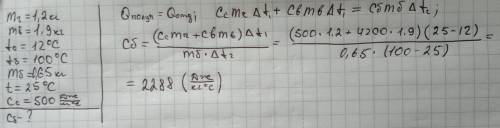 m₂ = 1,2кг
mв = 1,9кг
t₀ = 12°C
tδ = 100°C
mδ = 0,65 кг
t = 25°C
Cс = 500 Дж/кг°C
Cδ - ?
Qполуч = Qотд; Cс mс Δt₁ + Cв mв Δt₁ = Cδ mδ Δt₂;
Cδ = (Cс mс + Cв mв) Δt₁ / mδ · Δt₂ = (500 · 1,2 + 4200 · 1.9) (25 - 12) / 0,65 · (100 - 25) =
= 2288 (Дж/кг°C)